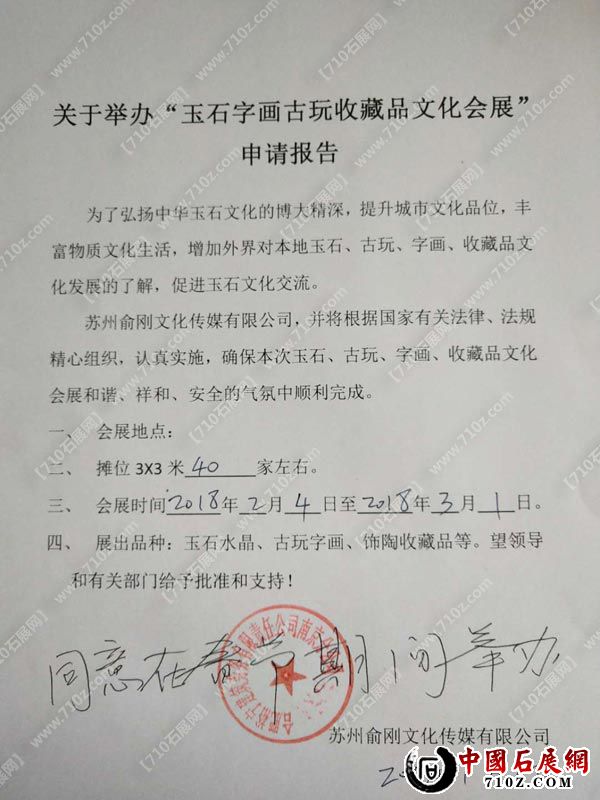 关于举办“玉石字画古玩收藏品文化会展”
申请报告
为了弘扬中华玉石文化的博大精深，提升城市文化品位，丰
富物质文化生活，增加外界对本地玉石、古玩、字画、收藏品文
化发展的了解，促进玉石文化交流。
苏州俞刚文化传媒有限公司，并将根据国家有关法律、法规
精心组织，认真实施，确保本次玉石、古玩、字画、收藏品文化
会展和谐、祥和、安全的气氛中顺利完成。
一、 会展地点：
二、 摊位 3X3 米 40 家左右。
三、 会展时间 2018 年 2 月 4 日至 2018 年 3 月 1 日。
四、 展出品种：玉石水晶、古玩字画、饰陶收藏品等。望领导
和有关部门给予批准和支持！
同意在春节期间举办
有限责任公司南京
苏州俞刚文化传媒有限公司
中國石展網
www.710z.com
【710石展网】www.710z.com